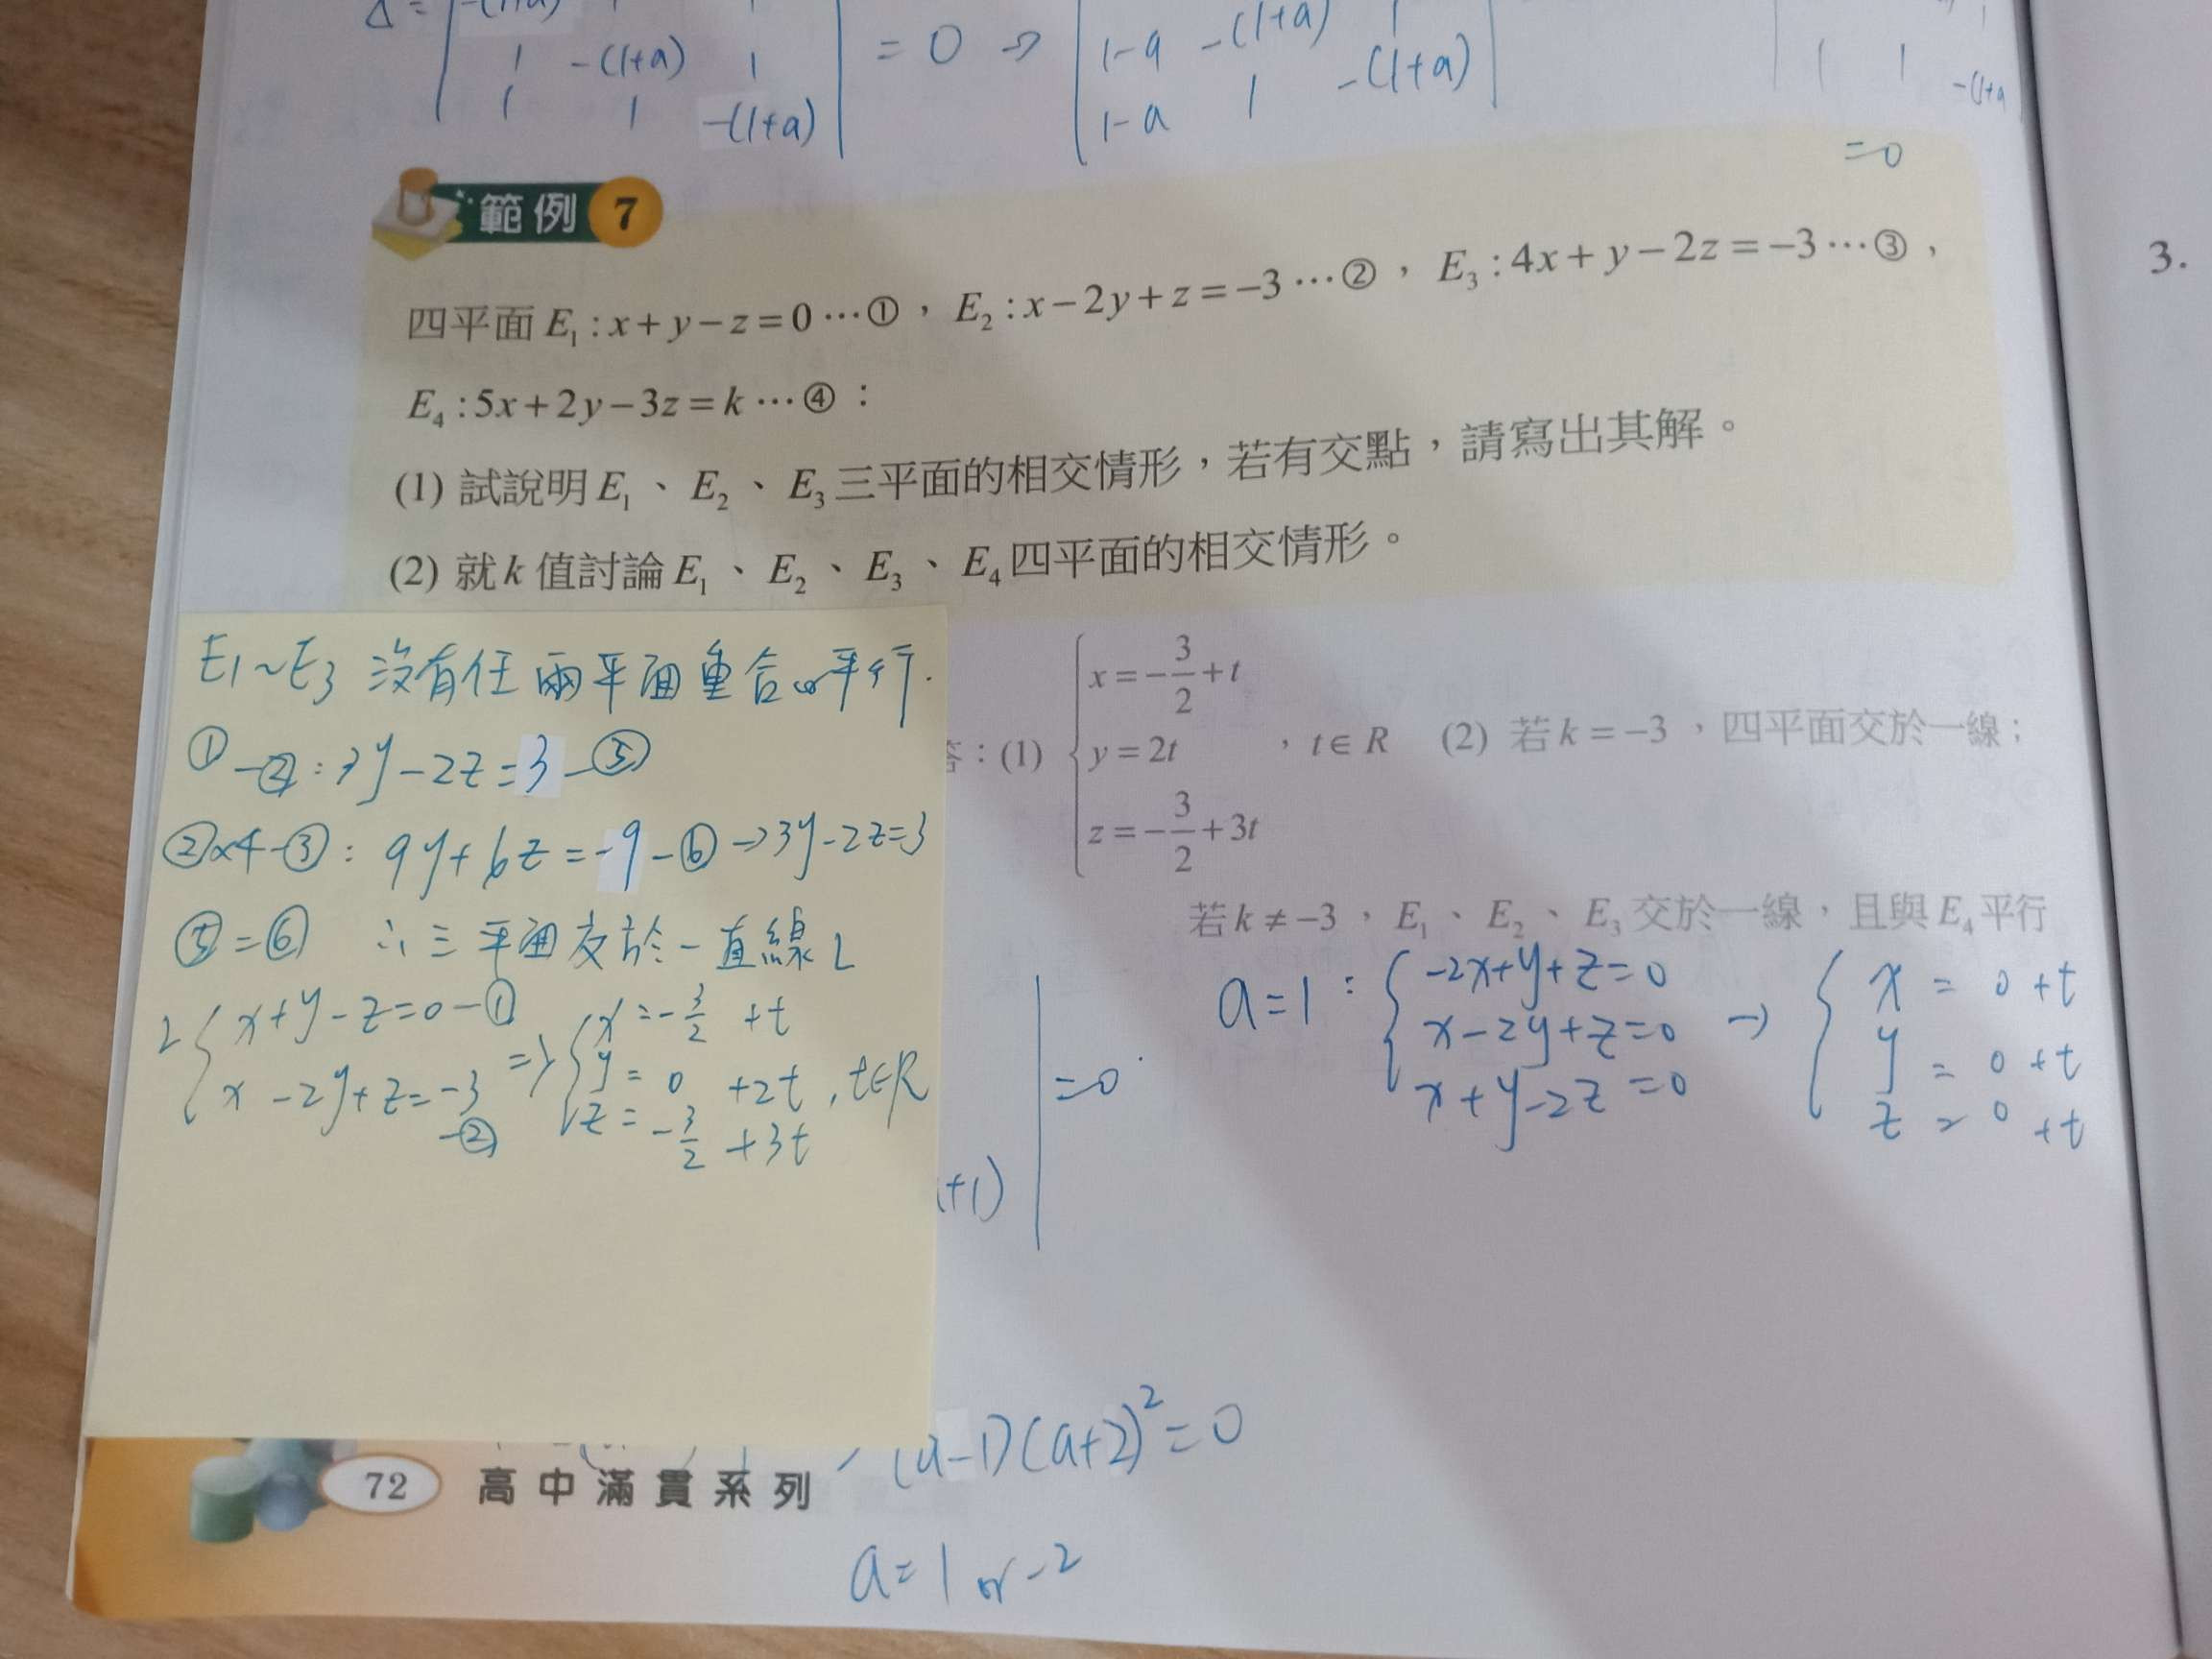 Δ = | -(1+a) 1 1
1 -(1+a) 1
1 1 -(1+a) | = 0 ⇒ | 1-a -(1+a) 1
1-a 1 -(1+a) |
1 1 -(1+a
=0
範例 7
四平面 E₁ : x + y − z = 0 ⋯ ①，E₂ : x − 2y + z = −3 ⋯ ②，E₃ : 4x + y − 2z = −3 ⋯ ③，
3.
E₄ : 5x + 2y − 3z = k ⋯ ④：
(1) 試說明 E₁、E₂、E₃ 三平面的相交情形，若有交點，請寫出其解。
(2) 就 k 值討論 E₁、E₂、E₃、E₄ 四平面的相交情形。
E1~E3 沒有任兩平面重合or平行.
①-②: 3y-2z=3-⑤
②x4-③: 9y+6z=-9-⑥→3y-2z=3
⑤=⑥ ∴三平面交於一直線L
L { x+y-z=0-①
x-2y+z=-3-② => { x=-3/2+t
y=0+2t
z=-3/2+3t , t∈R
答：(1) { x = −3/2 + t
y = 2t
z = −3/2 + 3t ，t ∈ R (2) 若 k = −3，四平面交於一線；
若 k ≠ −3，E₁、E₂、E₃ 交於一線，且與 E₄ 平行
a=1 : { -2x+y+z=0
x-2y+z=0
x+y-2z=0 → { x = 0+t
y = 0+t
z = 0+t
=0
+1)
(a-1)(a+2)²=0
72 高中滿貫系列
a=1 or -2